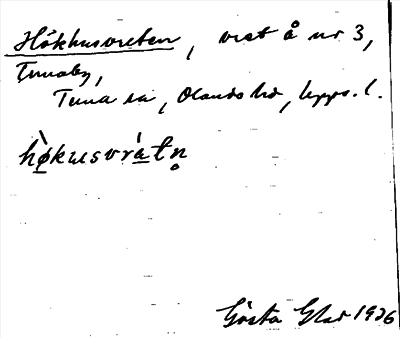 Hökhusvreten, vret å nr 3,
Tunaby,
Tuna sn, Olands hd, Upps. l.
hø̀kusvràtn̥
Gösta 1936